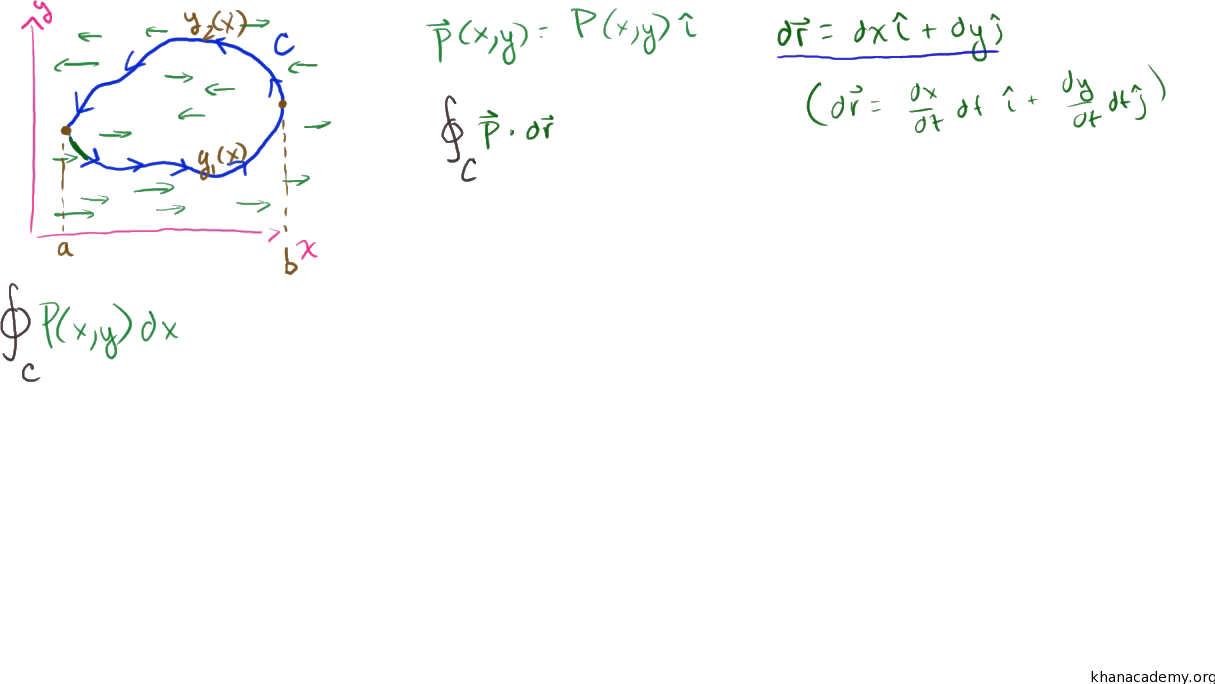 y
y₂(x)
C
y₁(x)
a
b
x
P⃗(x,y) = P(x,y) î
∮_C P⃗ · dr⃗
dr⃗ = dx î + dy ĵ
(dr⃗ = dx/dt dt î + dy/dt dt ĵ)
∮_C P(x,y) dx
khanacademy.org